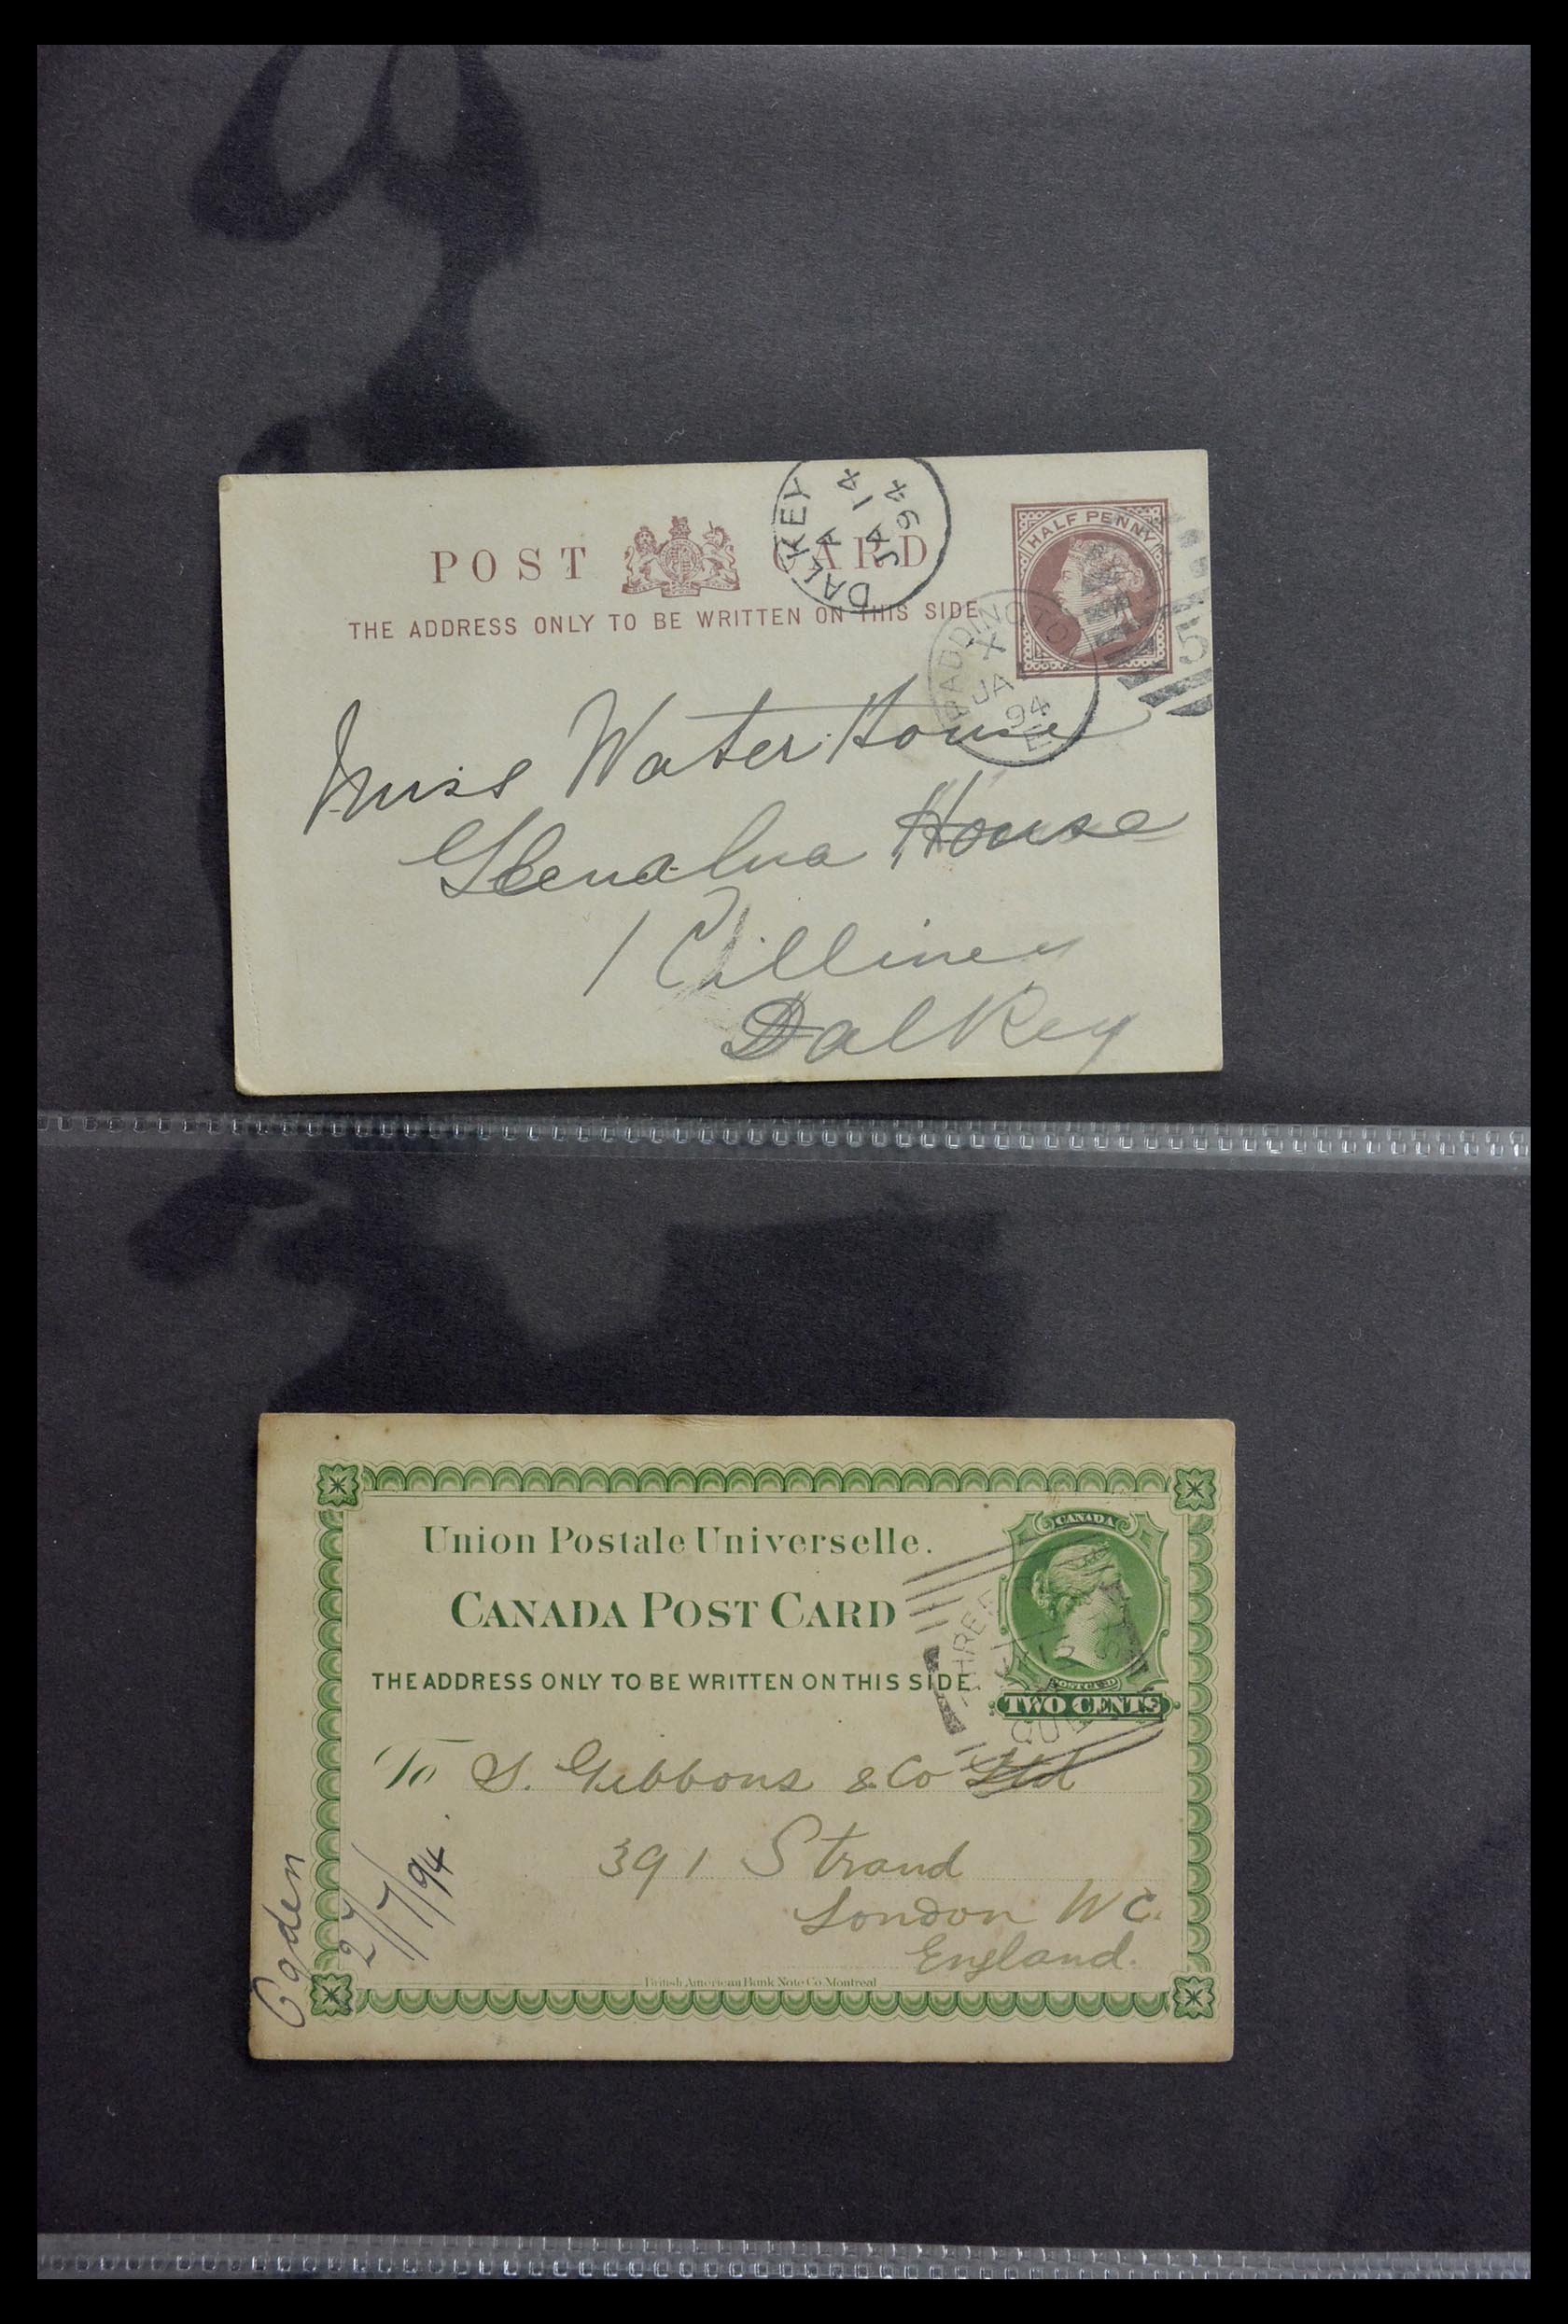 POST CARD
THE ADDRESS ONLY TO BE WRITTEN ON THIS SIDE
HALF PENNY
DALKEY
A
JA 14
94
PADDINGTO
X
JA
94
5
Miss Water House
Glenalua House
Killiney
Dalkey
Union Postale Universelle.
CANADA POST CARD
THE ADDRESS ONLY TO BE WRITTEN ON THIS SIDE.
CANADA
POST CARD
TWO CENTS
THREE
QUE
To S. Gibbons & Co Ltd
391 Strand
London WC.
England.
Ogden
27/7/94.
British American Bank Note Co. Montreal